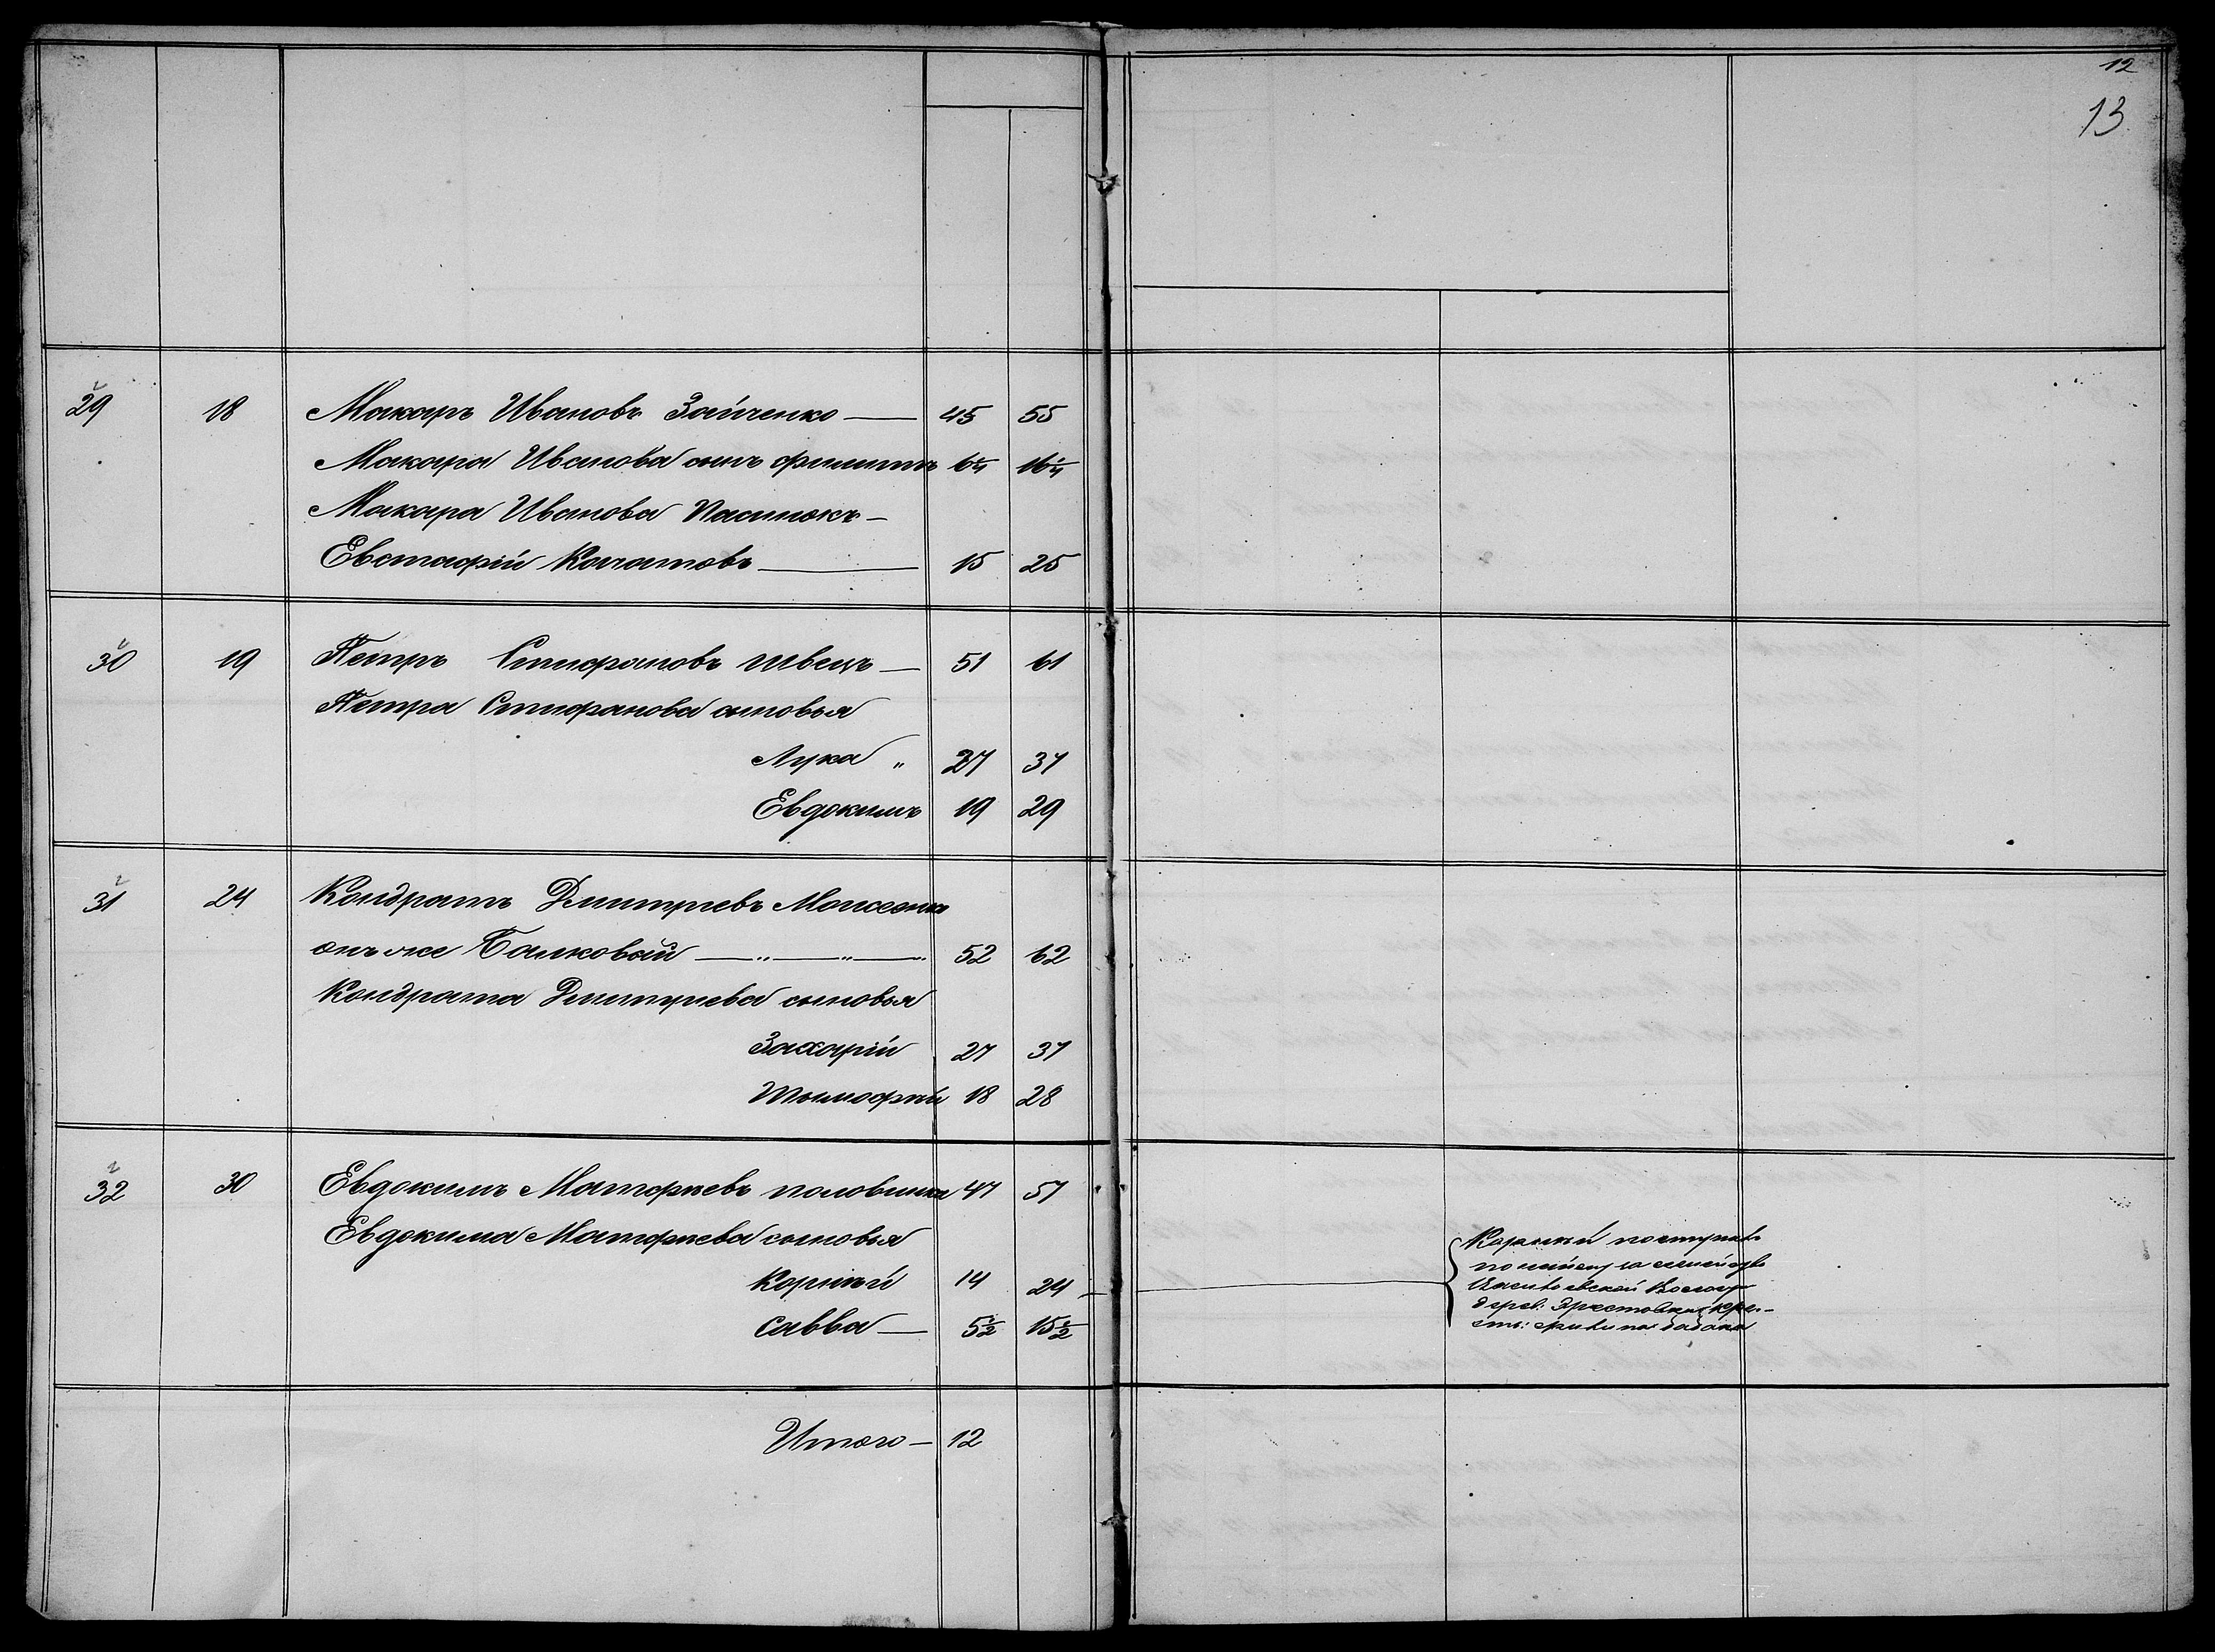 12
13
29 18 Макаръ Ивановъ Зайченко — 45 55
Макара Иванова сынъ Филиппъ 6¼ 16¼
Макара Иванова Пасынокъ —
Евстафій — 15 25
30 19 Петръ Стифановъ Швецъ — 51 61
Петра Стифанова сыновья
Лука „ 27 37
Евдокимъ 19 29
31 24 Кондратъ Дмитріевъ
онъ же — „ — „ — „ 52 62
Кондрата Дмитріева сыновья
Захарій 27 37
Тымофѣй 18 28
32 30 Евдокимъ Матфѣевъ Половинка 47 57
Евдокима Матфѣева сыновья
Корнѣй 14 24 —
Савва — 5½ 15½
Корнѣй поступилъ
по найму за
Волости
дерев:
Итого — 12